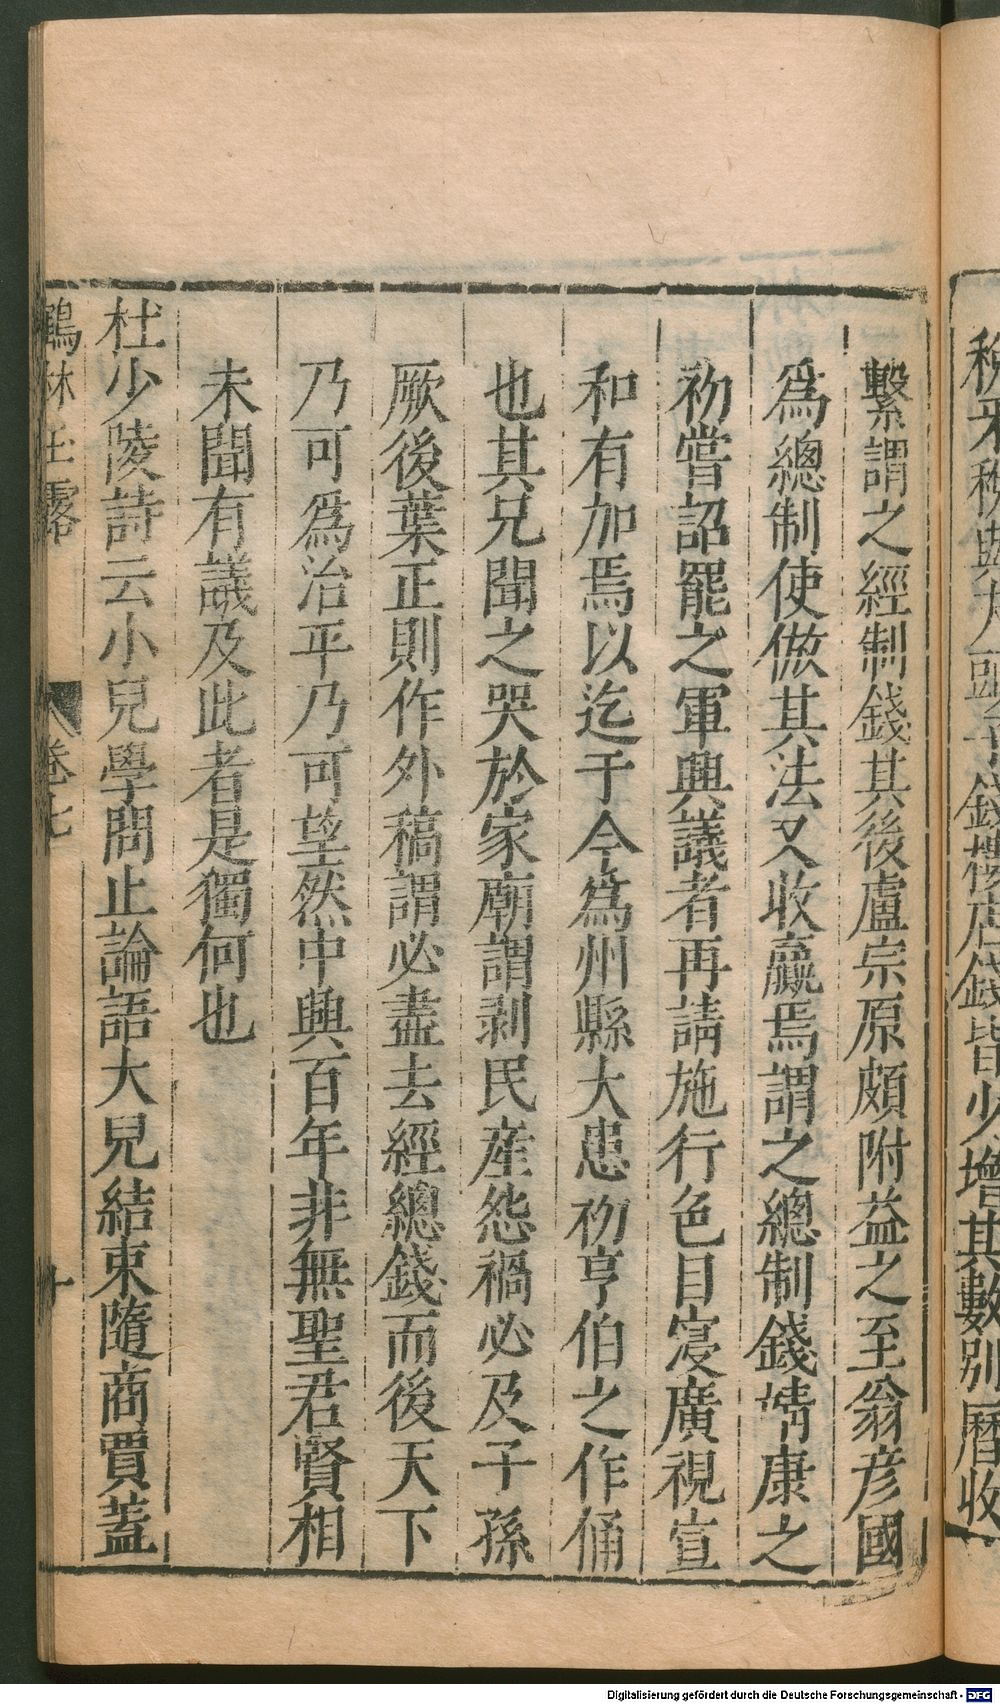 稅
錢樓店錢皆少增其數別曆收
繫謂之經制錢其後盧宗原頗附益之至翁彦國
爲總制使倣其法又收贏焉謂之總制錢靖康之
初嘗詔罷之軍興議者再請施行色目寖廣視宣
和有加焉以迄于今爲州縣大患初亨伯之作俑
也其兄聞之哭於家廟謂剥民産怨禍必及子孫
厥後葉正則作外稿謂必盡去經總錢而後天下
乃可爲治平乃可望然中興百年非無聖君賢相
未聞有議及此者是獨何也
杜少陵詩云小兒學問止論語大兒結束隨商賈蓋
鶴林玉露
卷七
十
Digitalisierung gefördert durch die Deutsche Forschungsgemeinschaft - DFG